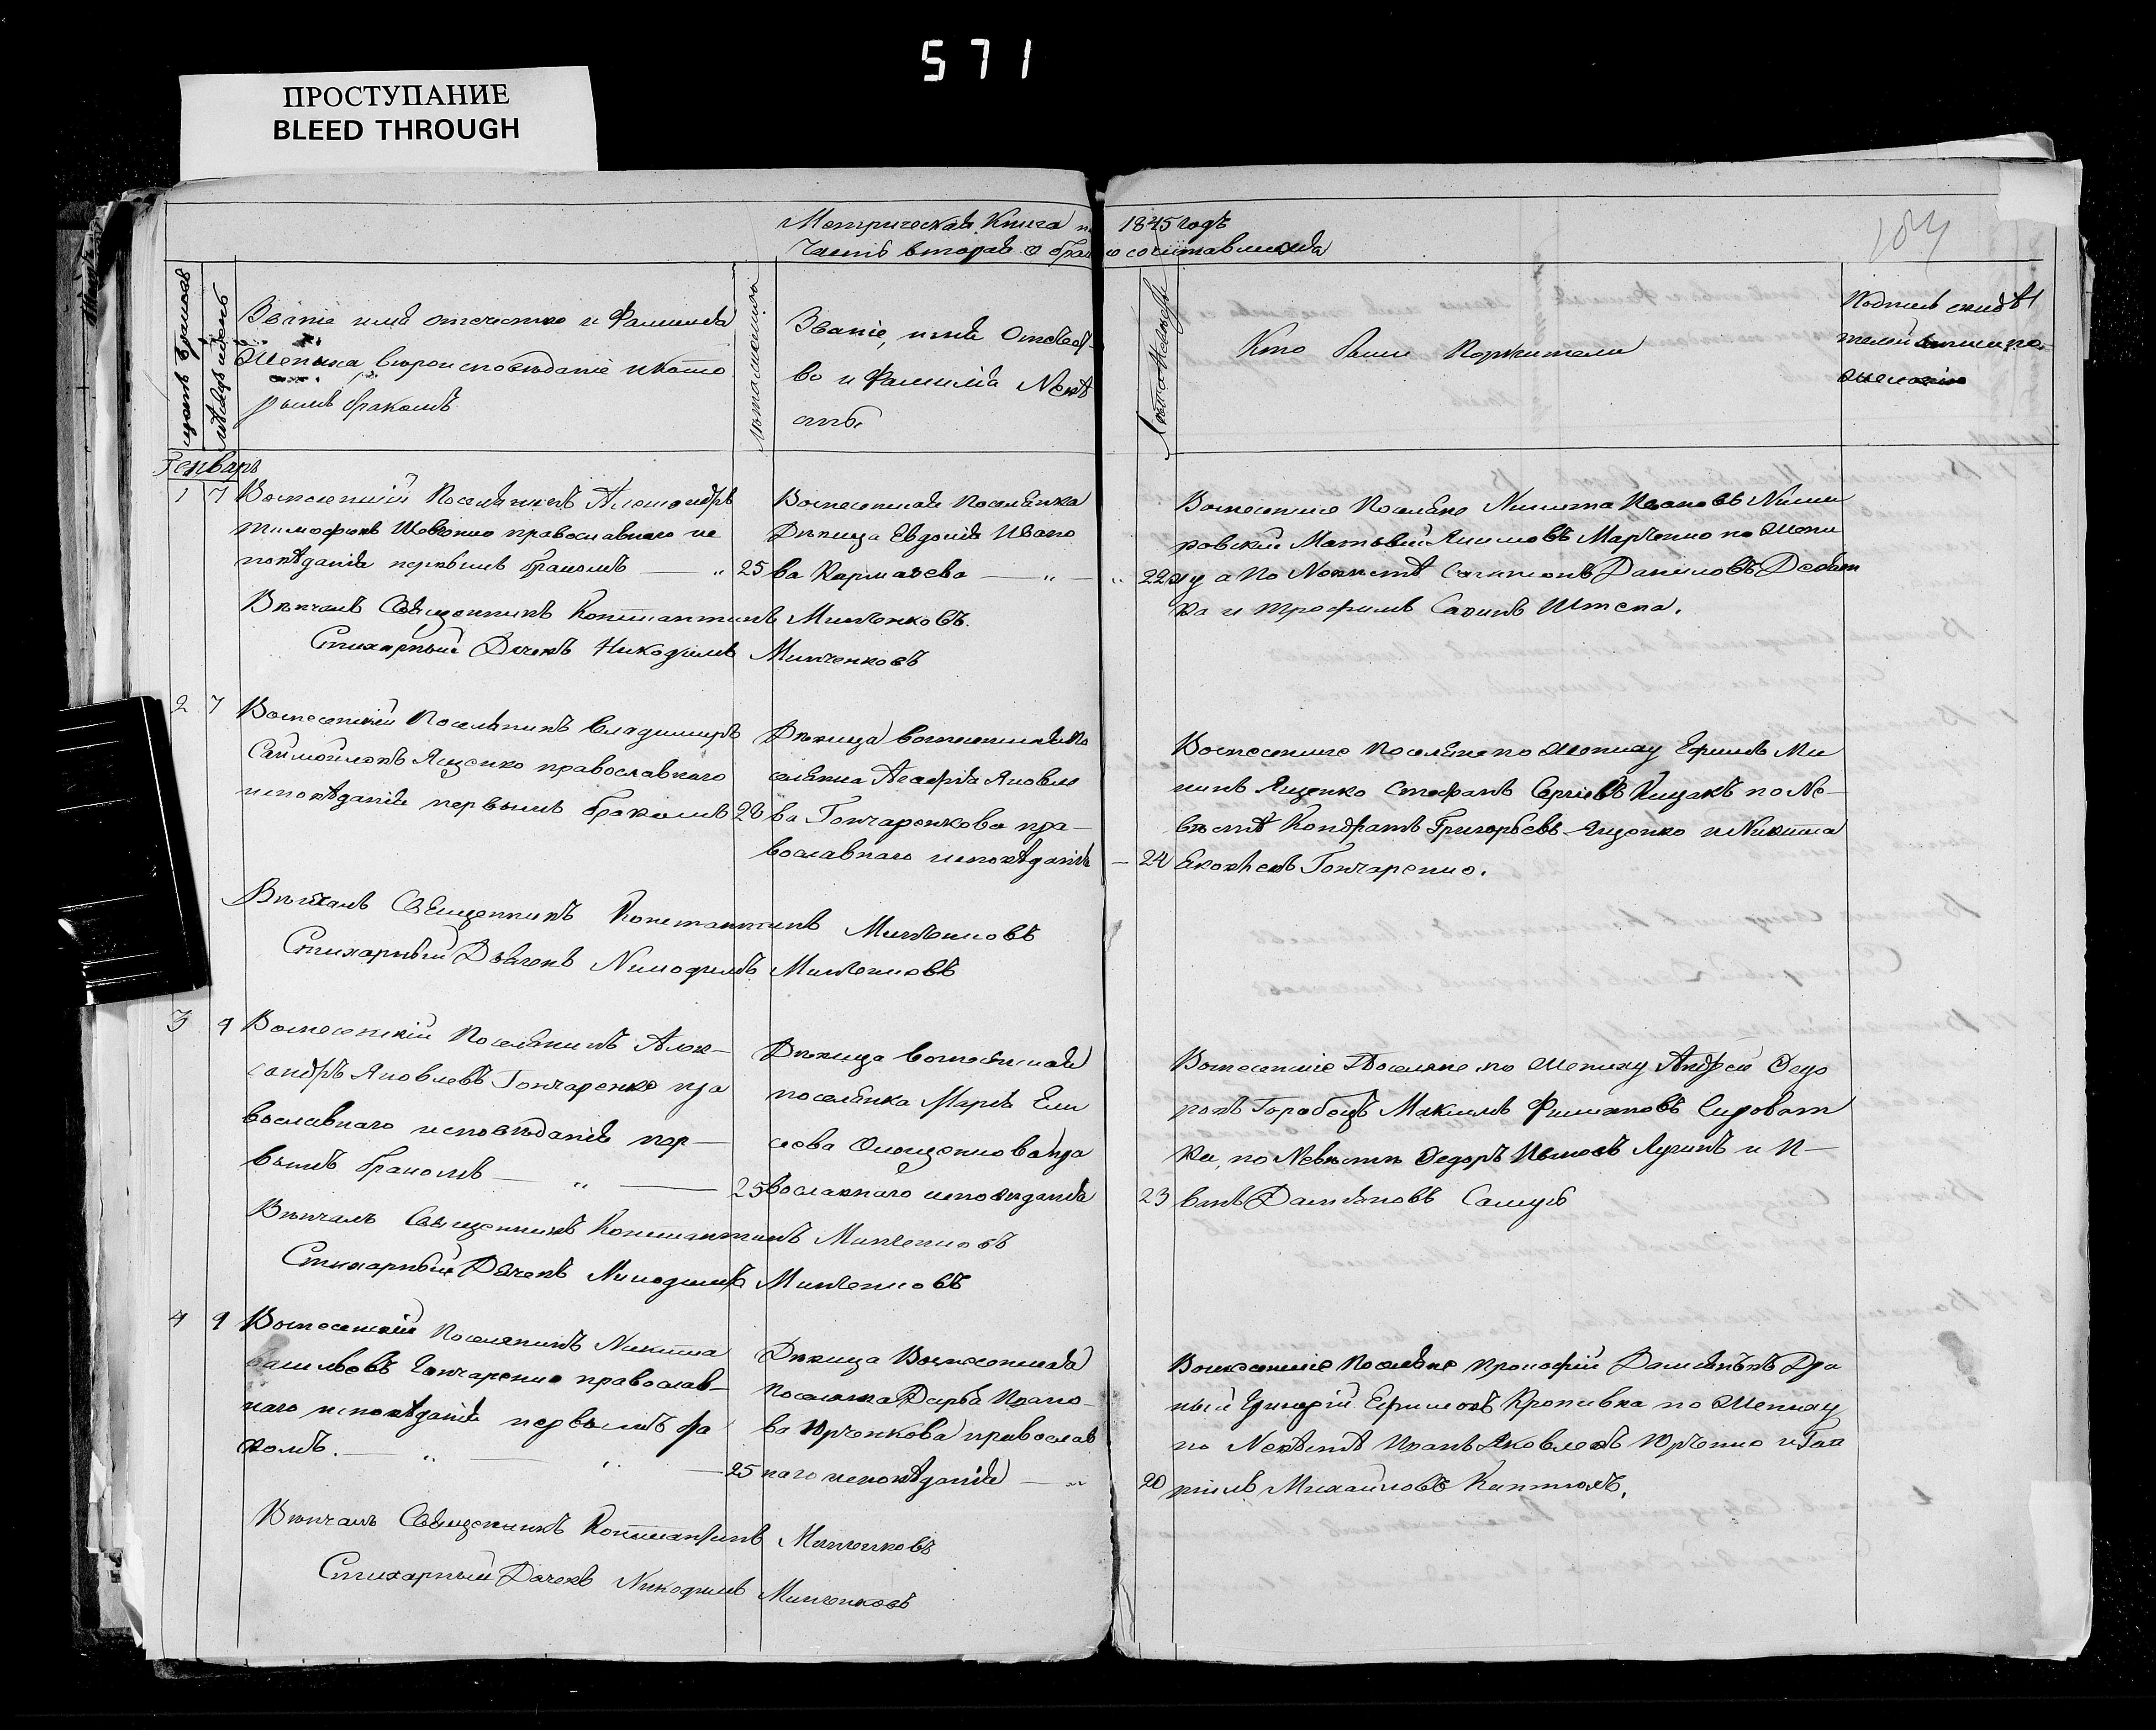 571
ПРОСТУПАНИЕ
BLEED THROUGH
Метрическая Книга на 1845 годъ
Часть вторая о бракосочитавшихся
щотъ браковъ
мѣсяцъ и день
Званіе имя отечество и Фамилія
Жениха, вѣроисповѣданіе и кото
рымъ бракомъ
лѣта жениха
Званіе, имя Отчест-
во и Фамилія Невѣ
сты
Лѣта Невѣсты
Кто были Поручители
Подпись свидѣ
телей
Генварь
1 7 Вознесенскій Поселянинъ Александръ
Тимофѣевъ Шевченко православнаго ис
повѣданія первымъ бракомъ — „ 25
Вознесенская Поселянка
Дѣвица Евдокія Ивано
ва Кармазева — „ — „ 22
Вознесенские Поселяне Никита Ивановъ
ровский Матвѣй Якимовъ Марченко по Жени
ху а по Невѣстѣ Даниловъ
ка и Трофимъ Савинъ
Вѣнчалъ Священникъ Константинъ Минченковъ.
Стихарный Дячекъ Никодимъ Минченковъ
2 7 Вознесенскій Поселянинъ Владимиръ
Саймойловъ Яценко православнаго
исповѣданія первымъ бракомъ 20
Дѣвица вознесенская По
селянка Агафія Яковле
ва Гончаренкова пра-
вославнаго исповѣданія — 24
Вознесенские Поселяне по Жениху Ефимъ Ми
нинъ Яценко Стефанъ Сергіевъ по Не-
вѣстѣ Кондратъ Григорьевъ Яценко и Никита
Яковлевъ Гончаренко.
Вѣнчалъ Священникъ Константинъ Минченковъ
Стихарный Дьячекъ Никодимъ Минченковъ
3 9 Вознесенскій Поселянинъ Алек-
сандръ Яковлевъ Гончаренко пра
вославнаго исповѣданія пер-
вымъ бракомъ — „ — 25
Дѣвица вознесенская
поселянка Марія Ели
сеева Онищенкова пра
вославнаго исповѣданія 23
Вознесенские Поселяне по Жениху Андрей Федо
ровъ Горобецъ Максимъ Филиповъ Сироват
ка, по Невѣстѣ Федоръ и И-
ванъ Даміяновъ
Вѣнчалъ Священникъ Константинъ Минченковъ
Стихарный Дячекъ Никодимъ Минченковъ
4 9 Вознесенскій Поселянинъ Никита
Васильевъ Гончаренко православ-
наго исповѣданія первымъ бра
комъ. „ — „ — 25
Дѣвица Вознесенская
Поселянка Дарья Ивано-
ва Юрченкова православ
наго исповѣданія — „ 20
Вознесенские Поселяне Прокофій Даміяновъ Дра
ный Григорій Ефимовъ Кропивка по Жениху
по Невѣстѣ Иванъ Яковлевъ Юрченко и Гав
рилъ Михайловъ
Вѣнчалъ Священникъ Константинъ Минченковъ
Стихарный Дячекъ Никодимъ Минченковъ